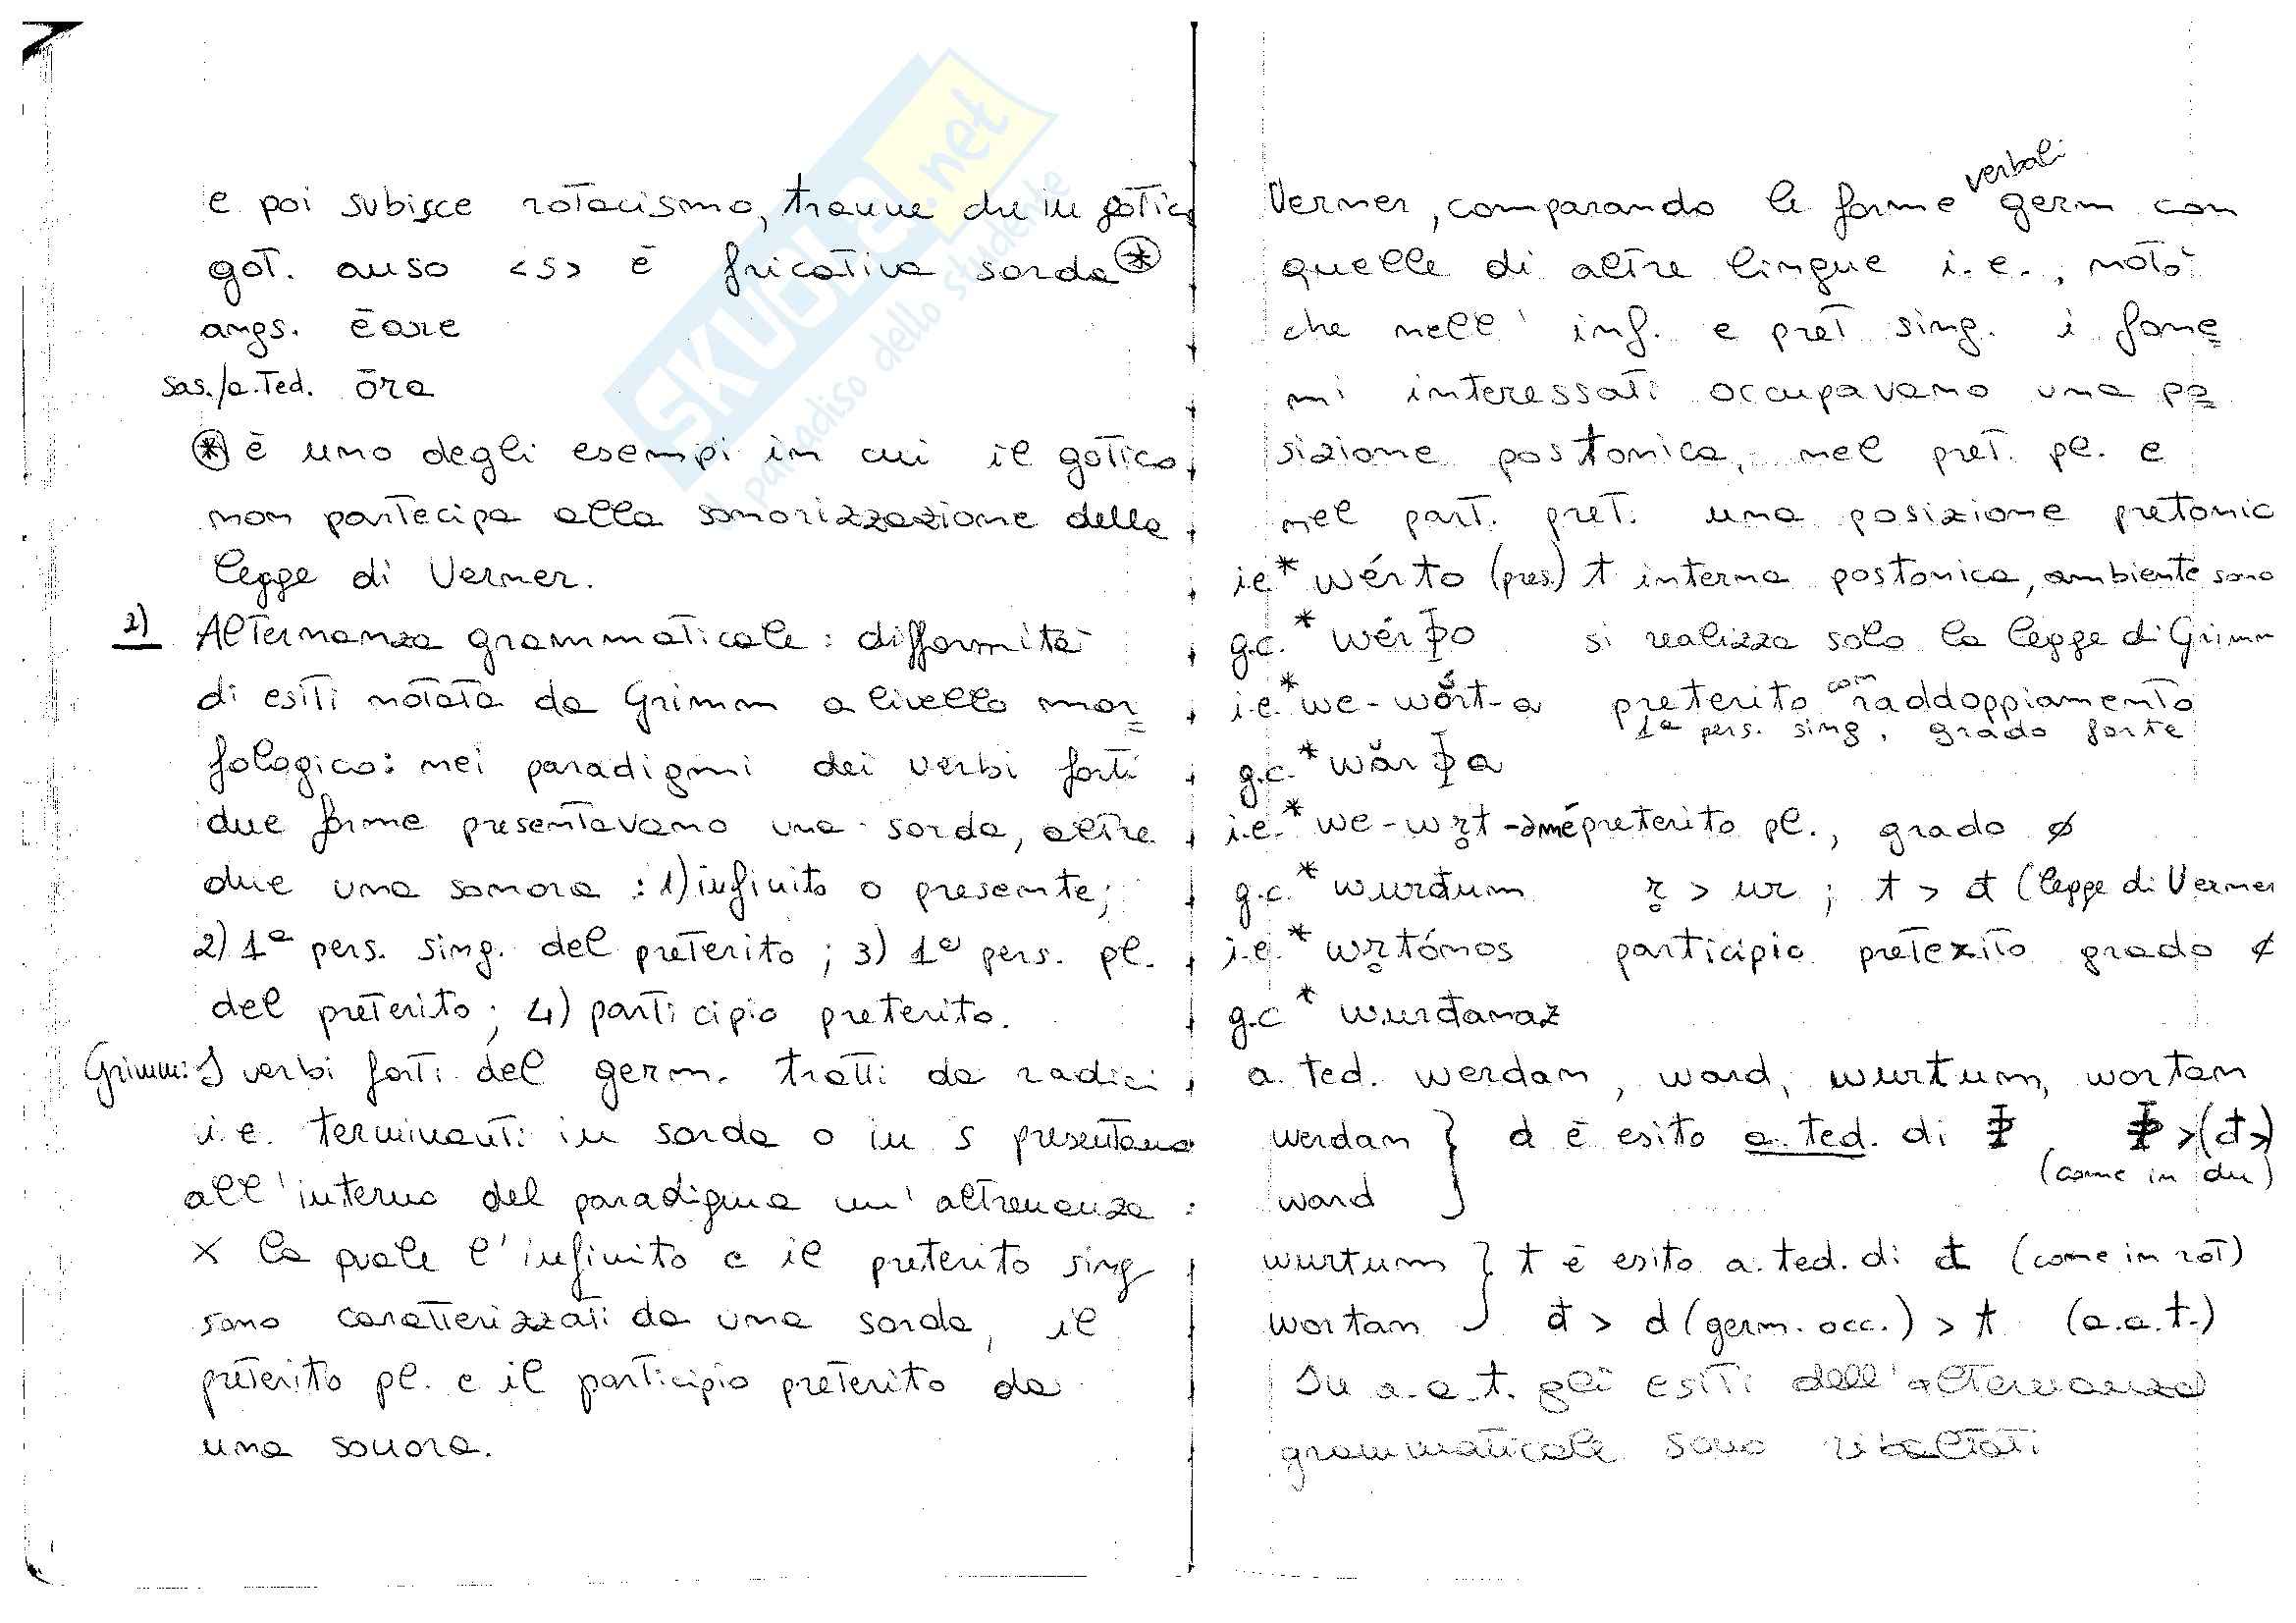 e poi subisce rotacismo, tranne che in gotico
got. auso <s> è fricativa sorda ⊛
angs. ēare
sas./a.Ted. ōra
⊛ è uno degli esempi in cui il gotico
non partecipa alla sonorizzazione della
legge di Verner.
2) Alternanza grammaticale: difformità
di esiti notata da Grimm a livello mor
fologico: nei paradigmi dei verbi forti
due forme presentavano una sorda, altre
due una sonora: 1) infinito o presente;
2) 1ª pers. sing. del preterito; 3) 1ª pers. pl.
del preterito; 4) participio preterito.
Grimm: I verbi forti del germ. tratti da radici
i.e. terminanti in sorda o in s presentano
all'interno del paradigma un'altrenanza
x la quale l'infinito e il preterito sing
sono caratterizzati da una sorda, il
preterito pl. e il participio preterito da
una sonora.
Verner, comparando le forme verbali germ con
quelle di altre lingue i.e., notò
che nell'inf. e pret sing. i fone
mi interessati occupavano una po
sizione postonica, nel pret. pl. e
nel part. pret. una posizione pretonic
i.e. * wérto (pres.) t interna postonica, ambiente sono
g.c. * wérþo si realizza solo la legge di Grimm
i.e. * we-wórt-a preterito con raddoppiamento
1ª pers. sing. grado forte
g.c. * wărþa
i.e. * we-wr̥t-əmé preterito pl., grado ø
g.c. * wurđum r̥ > ur; t > đ (legge di Verner
i.e. * wr̥tómos participio preterito grado ø
g.c * wurđanaz
a. ted. werdan, ward, wurtum, wortan
werdan } d è esito a. ted. di þ þ > (đ >)
(come in du)
ward
wurtum } t è esito a. ted. di đ (come in rot)
wortan đ > d (germ. occ.) > t (a.a.t.)
In a.a.t. gli esiti dell'alternanza
grammaticale sono ribaltati
SKUOLA.net
il paradiso dello studente